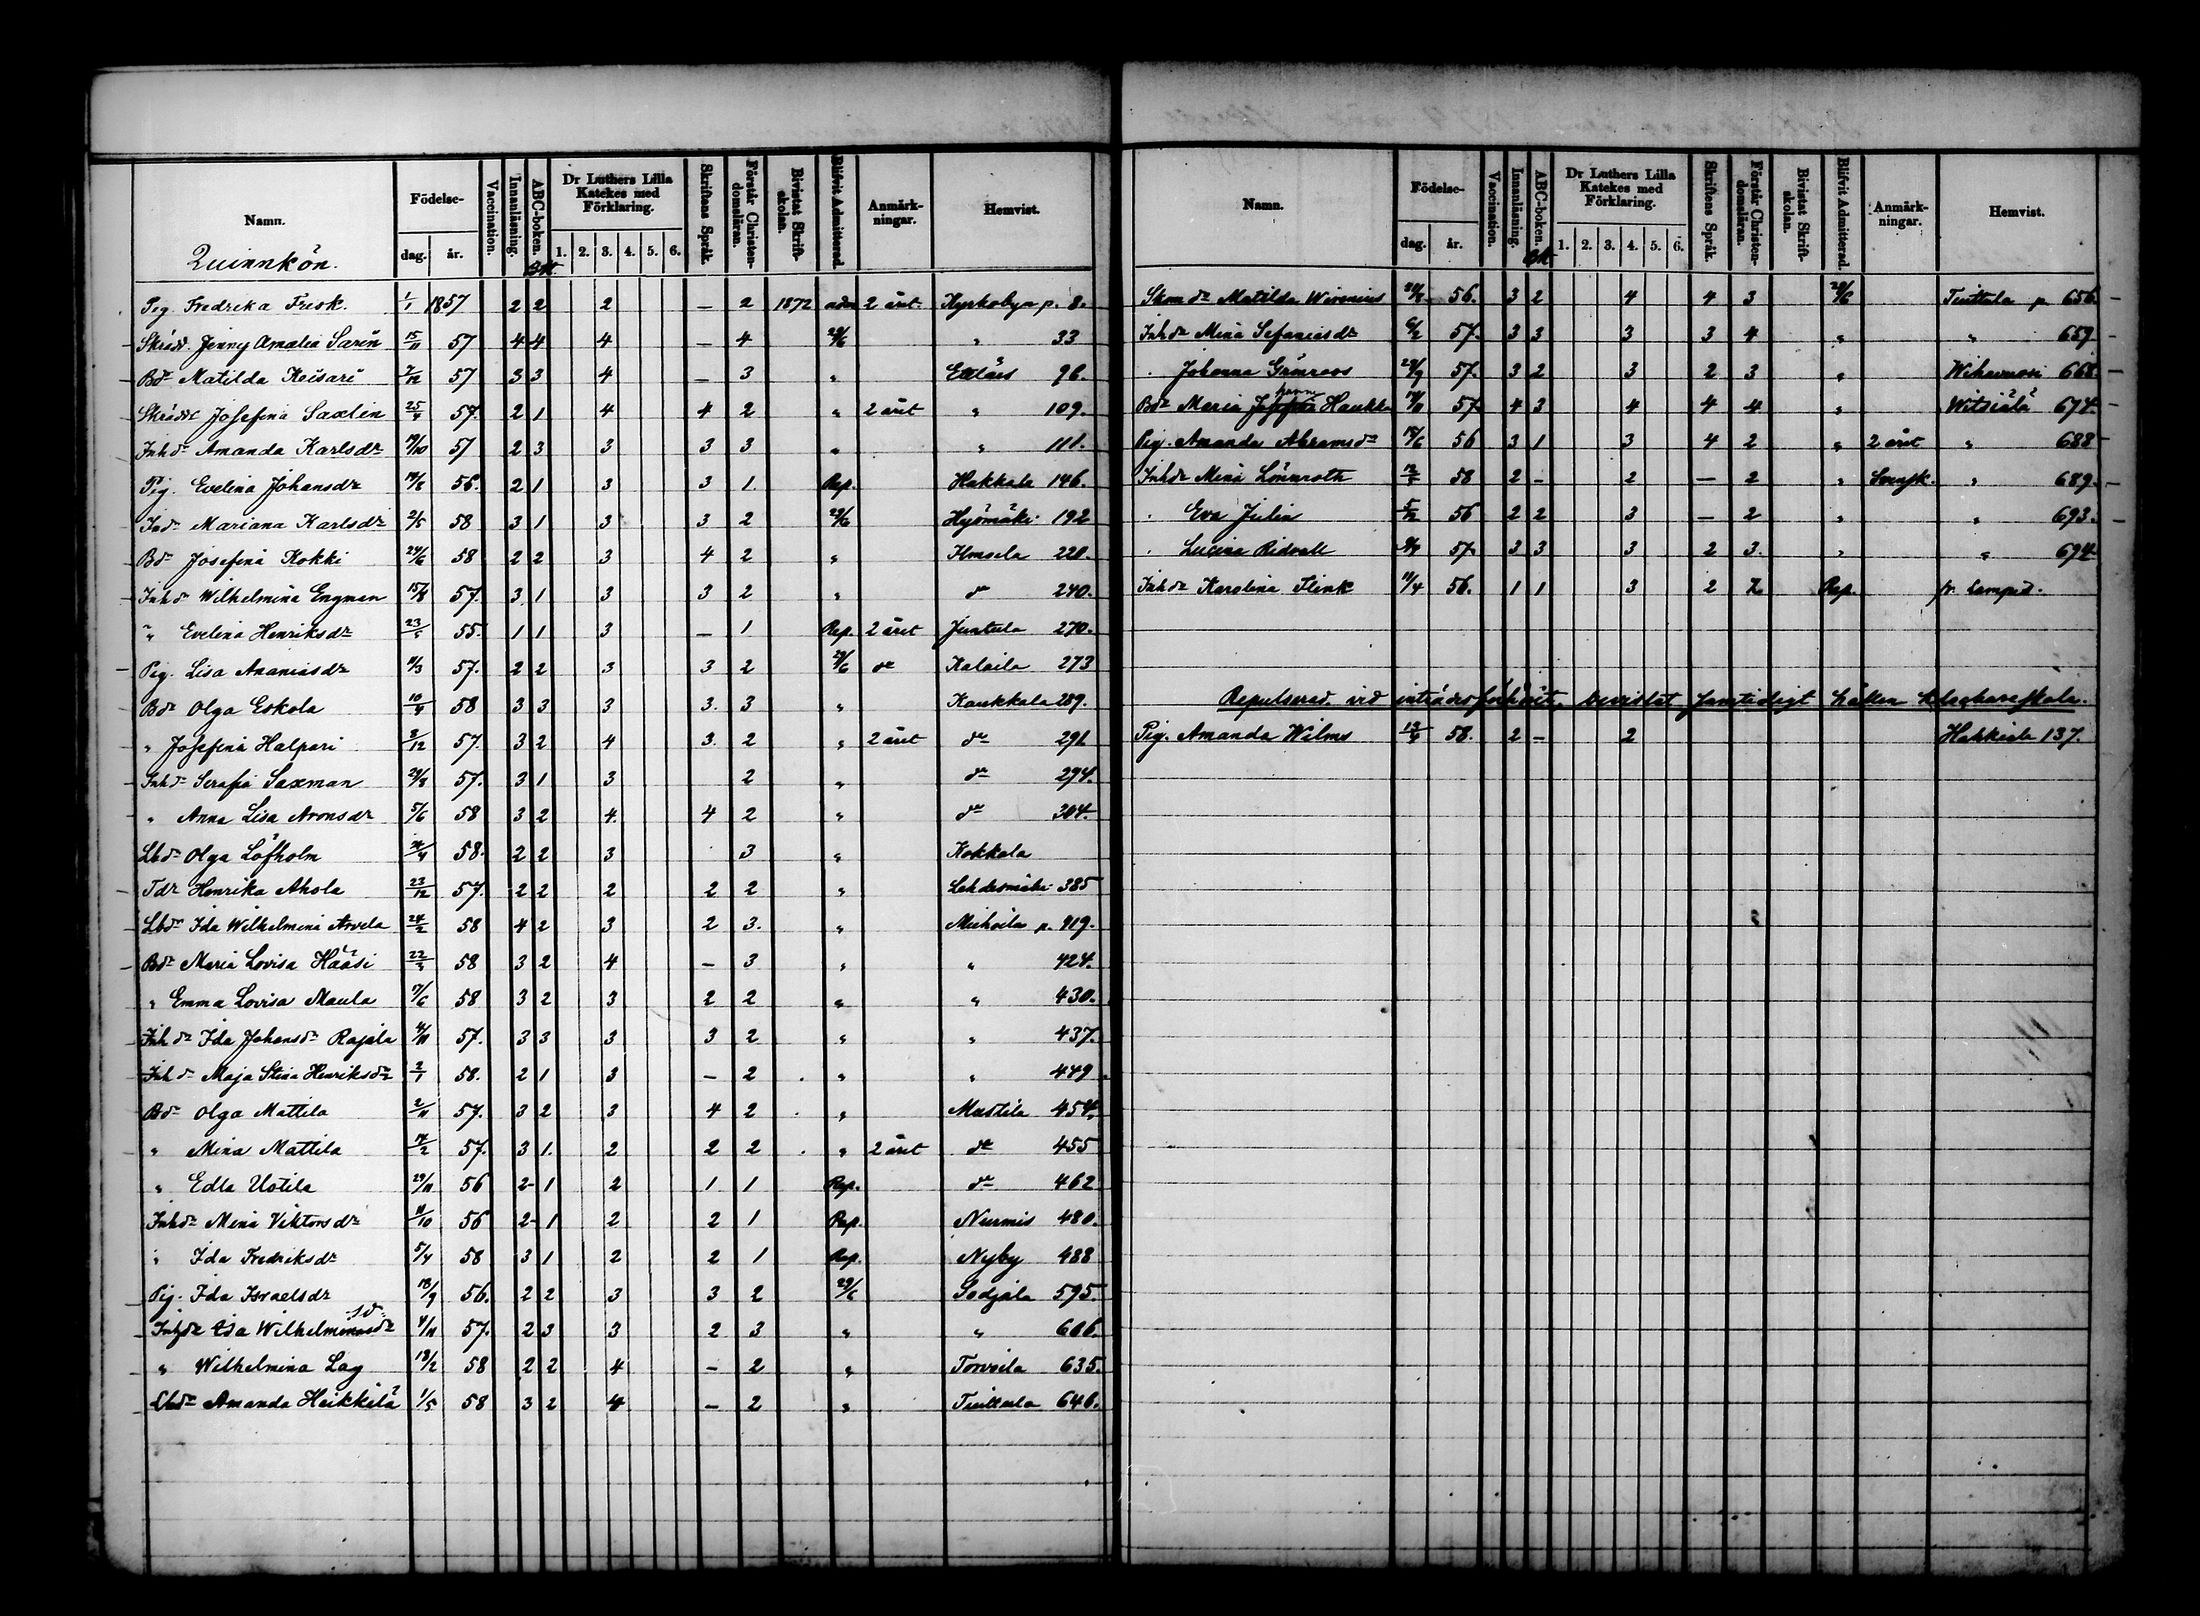 Namn. Födelse- Vaccination. Innanläsning. ABC-boken. Dr Luthers Lilla Katekes med Förklaring. Skriftens Språk. Förstår Christendomsläran. Bivistat Skriftskolan. Blifvit Admitterad. Anmärkningar. Hemvist.
dag. år. 1. 2. 3. 4. 5. 6.
Quinnkön.
Pig. Fredrika Frisk. 1/1 1857 2 2 2 — 2 1872 adm 2 året Kyrkobyn p. 8.
Skrädd. Jenny Amalia Sarin 15/11 57 4 4 4 — 4 29/6 " 33
Bdr Matilda Keisari 7/12 57 3 3 4 — 3 " 96.
Skrädd Josefina Saxlin 25/4 57. 2 1 4 4 2 " 2 året " 109.
Inhdr Amanda Karlsdr 57 2 3 3 3 3 " " 111.
Pig. Evelina Johansdr 56. 2 1 3 3 1. Rep. Hakkala 146.
Indr Mariana Karlsdr 2/5 58 3 1 3 3 2 29/6 Hysmäki 192
Bdr Josefina Kokki 24/6 58 2 2 3 4 2 " 220.
Inhdr Wilhelmina Engman 57. 3 1 3 3 2 " do 240.
" Evelina Henriksdr 55. 1 1 3 — 1 Rep. 2 året Juntula 270.
Pig. Lisa Ananiasdr 11/3 57. 2 2 3 3 2 29/6 do Kalaila 273
Bdr Olga Eskola 58 3 3 3 3. 3 " Kaukkala 289.
" Josefina Halpari 3/12 57. 3 2 4 3. 2 " 2 året do 291
Inhdr Serafia Saxman 57. 3 1 3 2 " do 294.
" Anna Lisa Aronsdr 5/6 58 3 2 4. 4 2 " do 304.
Lbdr Olga Löfholm 58. 2 2 3 3 " Kokkala
Tdr Henrika Ahola 23/12 57. 2 2 2 2 2 " Lehdesmäki 385
Lbdr Ida Wilhelmina Arvela 24/2 58 4 2 3 2 3. " Mihoila p. 419.
Bdr Maria Lovisa Hääsi 58 3 2 4 — 3 " " 424.
" Emma Lovisa Maula 58 3 2 3 2 2 " " 430.
Inhdr Ida Johansdr Rajala 4/11 57. 3 3 3 3 2 " " 437.
Inhdr Maja Stina Henriksdr 2/1 58. 2 1 3 — 2 " " 449
Bdr Olga Mattila 2/11 57. 3 2 3 4 2 " Mustila 454.
" Mina Mattila 57. 3 1. 2 2 2 " 2 året do 455
" Edla Uotila 29/11 56 2 1 2 1 1 Rep. do 462
Inhdr Mina Viktorsdr 11/10 56 2 1 2 2 1 Rep. Nurmis 480.
" Ida Fredriksdr 5/4 58 3 1 2 2 1 Rep. Nyby 488
Pig. Ida Israelsdr 18/9 56. 2 2 3 3 2 29/6 Sodjala 595.
Inhdr Ida Wilhelminasdr 4/11 57. 2 3 3 2 3 " " 606.
" Wilhelmina Lag 18/2 58 2 2 4 — 2 " Torvoila 635.
Lbdr Amanda Heikkilä 1/5 58 3 2 4 — 2 " Tiuttula 646.
Namn. Födelse- Vaccination. Innanläsning. ABC-boken. Dr Luthers Lilla Katekes med Förklaring. Skriftens Språk. Förstår Christendomsläran. Bivistat Skriftskolan. Blifvit Admitterad. Anmärkningar. Hemvist.
dag. år. 1. 2. 3. 4. 5. 6.
Skomdr Matilda Wirenius 56. 3 2 4 4 3 29/6 Tiuttula p 656.
Inhdr Mina Sefaniasdr 6/2 57. 3 3 3 3 4 " " 659
" Johanna Grönroos 29/9 57. 3 2 3 2 3 " 668.
Bdr Maria Johanna Haukka 57. 4 3 4 4 4 " Witsiälä 674.
Pig. Amanda Abramsdr 56 3 1 3 4 2 " 2 året " 688
Inhdr Mina Lönnroth 58 2 – 2 — 2 " Svensk. " 689.
" Eva Julin 5/12 56 2 2 3 — 2 " " 693.
" Lucina Ridvall 57. 3 3 3 2 3. " " 694
Inhdr Karolina Flink 11/4 56. 1 1 3 2 2 Rep. fr. Lampis.
Repulserad vid inträdesförhöret, bevistat samtidigt hållen klockareskola.
Pig. Amanda Wilms 58. 2 – 2 Hakkala 137.